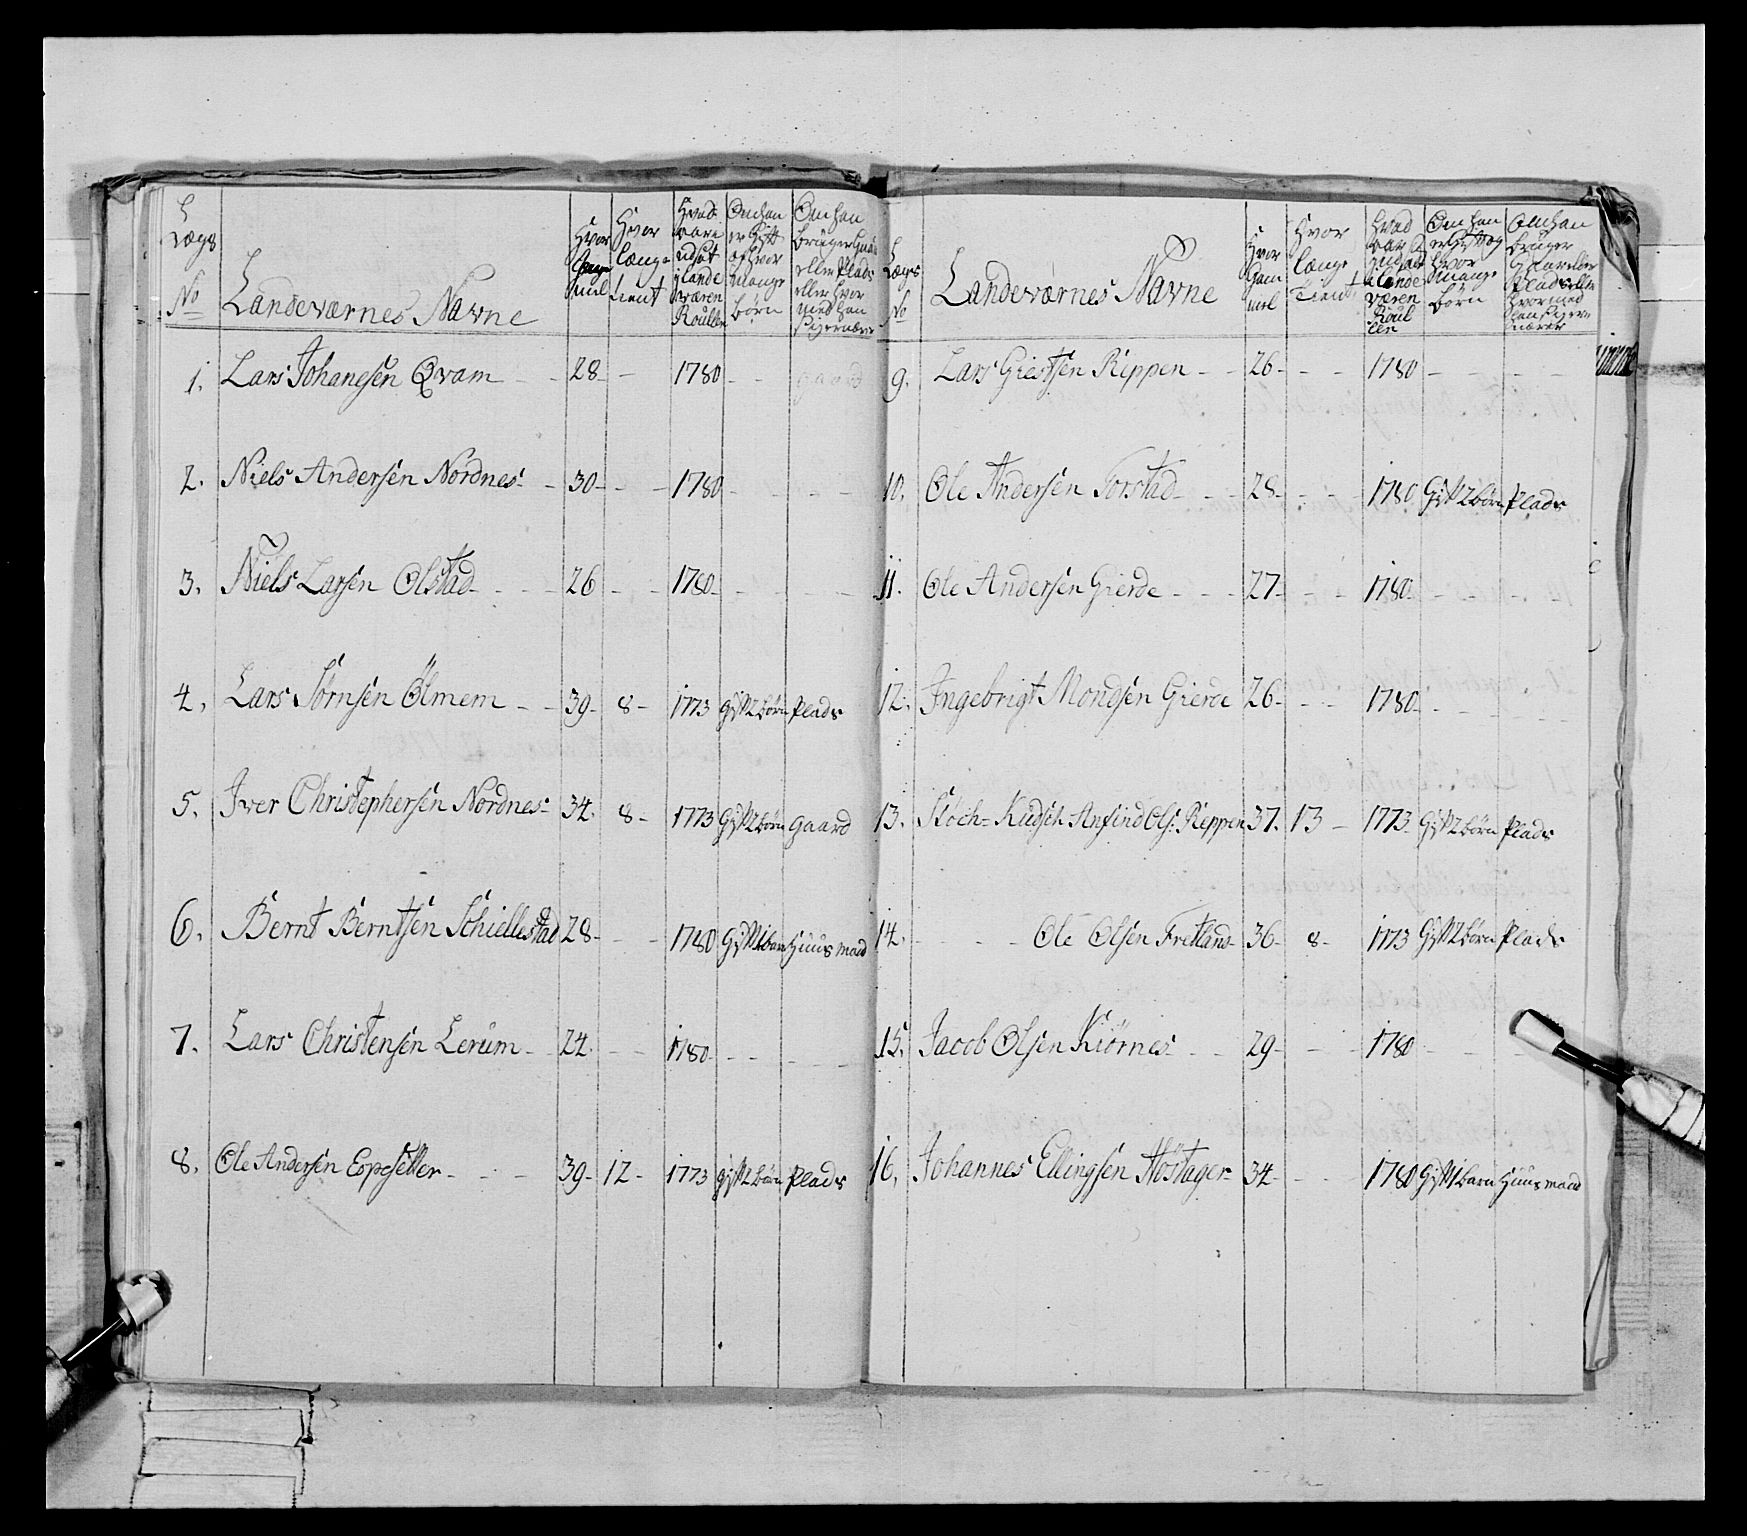 Lægs No
Landeværnes Navne
Hvor Gammel
Hvor længe tient
Hvad aar udsat i Lande væren Roullen
Om han er Gift og hvor mange børn
Om han brüger Gaard eller Plads eller hvor med han sig ernærer
1. Lars Johanesen Qvam - - 28 - - 1780 - - gaard
2. Niels Andersen Nordnes - - 30 - - - 1780 - - - -
3. Niels Larsen Olstad - - - - 26 - - 1780 - - - - -
4. Lars Sørnsen Ølmem - - 39 - 8 - 1773 Gift 2 børn Plads
5. Iver Christephersen Nordnes - 34. 8 - 1773 Gift 2 børn gaard
6. Bernt Berntsen Schiellestad 28 - - - 1780 Gift 1 barn Huus mand
7. Lars Christensen Lerüm - - 24. - - 1780 - - - - -
8. Ole Andersen Eopesetter - - - - 39 - 12 - 1773 gift 2 børn Plads
Lægs No
Landeværnes Navne
Hvor Gam mel
Hvor længe tient
Hvad aar Indsat i Lande væren Roul len
Om han er Gift og hvor mange børn
Om han brüger Gaar eller Plads eller hvor med han sig ernærer
9. Lars Giestsen Rippen - - 26 - - - 1780 - - - -
10. Ole Andersen Torstad - - - 28 - - - 1780 Gift 2 børn Plads
11. Ole Andersen Gierde - - - 27 - - - 1780 - - - -
12. Ingebrigt Mondsen Gierde 26 - - - 1780 - - - - -
13. Støch-Kudsk Anfind Ols: Reppen 37. 13 - 1773 - Gift 2 børn Plads
14. - - - Ole Olsen Fretland - 36 - 8 - 1773 Gift 2 børn Plads
15. Jacob Olsen Kiørnes - - 29 - - - 1780 - - -
16. Johannes Ellingsen Høstager - 34 - - - 1780 Gift 1 barn Huus mand